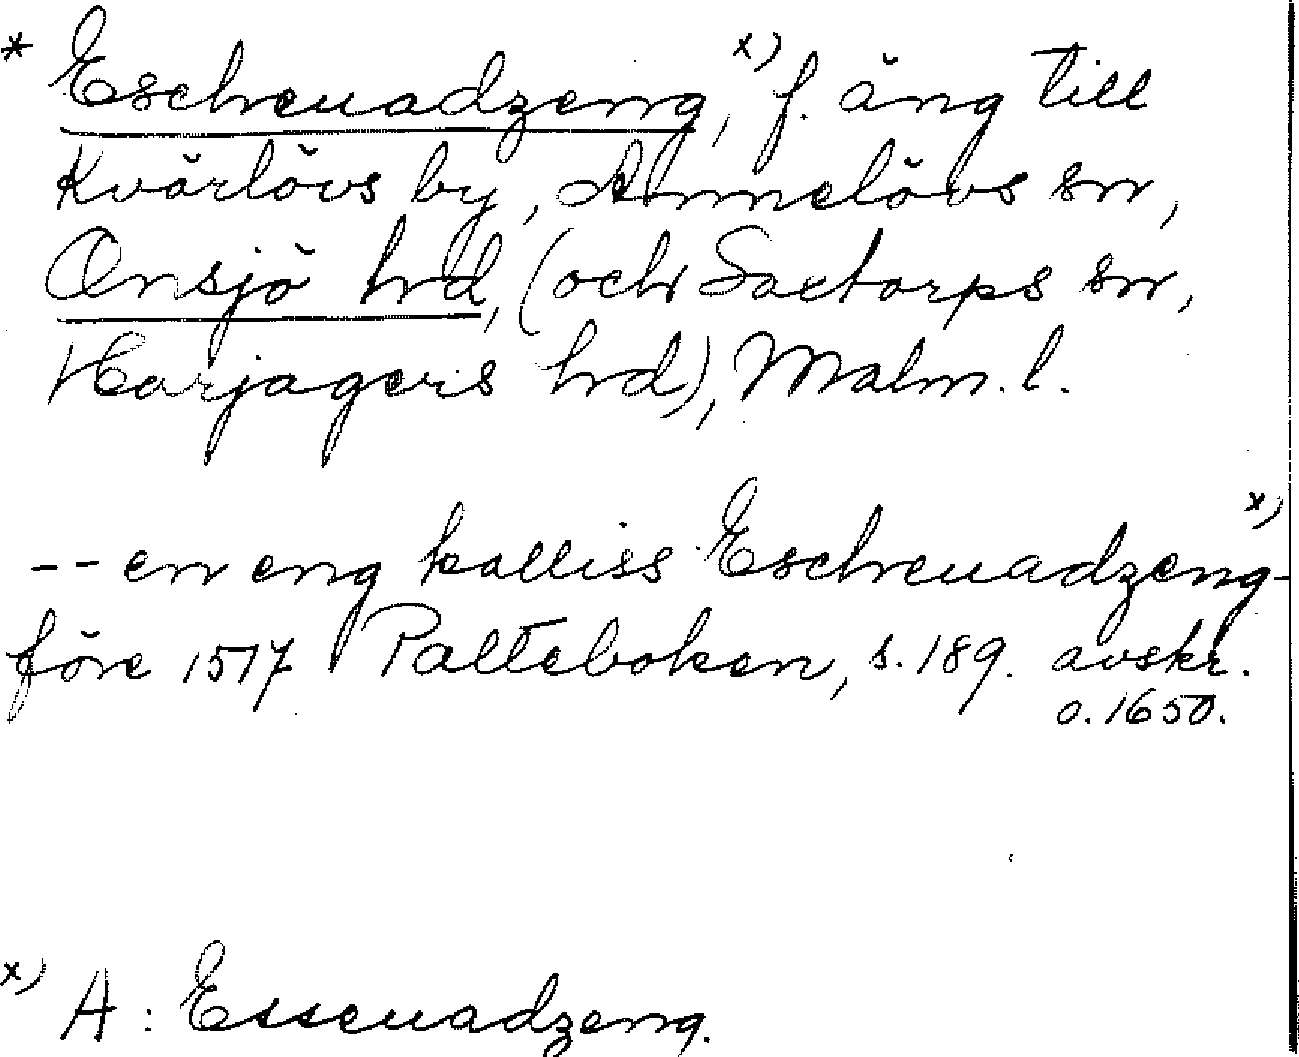 * Escheuadzeng, x) f. äng till
Kvärlövs by, Annelövs sn,
Onsjö hd, (och Saxtorps sn,
Harjagers hd), Malm. l.
-- en eng kalliss Escheuadzeng x) -
före 1517 Palteboken, s. 189. avskr.
o. 1650.
x) A: Esseuadzeng.